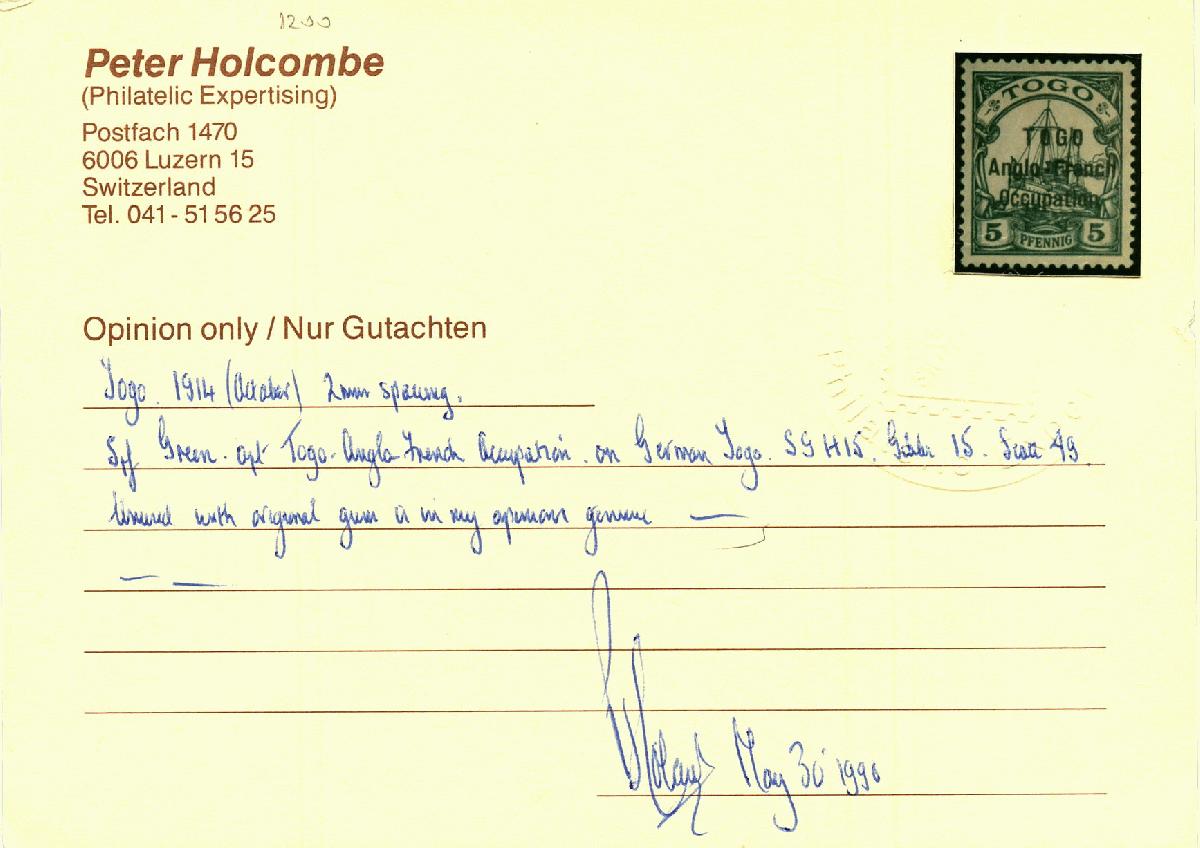 1200
Peter Holcombe
(Philatelic Expertising)
Postfach 1470
6006 Luzern 15
Switzerland
Tel. 041 - 51 56 25
TOGO
TOGO
Anglo-French
Occupation
5 PFENNIG 5
Opinion only / Nur Gutachten
Togo. 1914 (October) 2mm spacing.
5pf Green. opt Togo-Anglo French Occupation. on German Togo. SG H15. 15. Scott 49.
Unused with original gum is in my opinion genuine —
May 30 1990